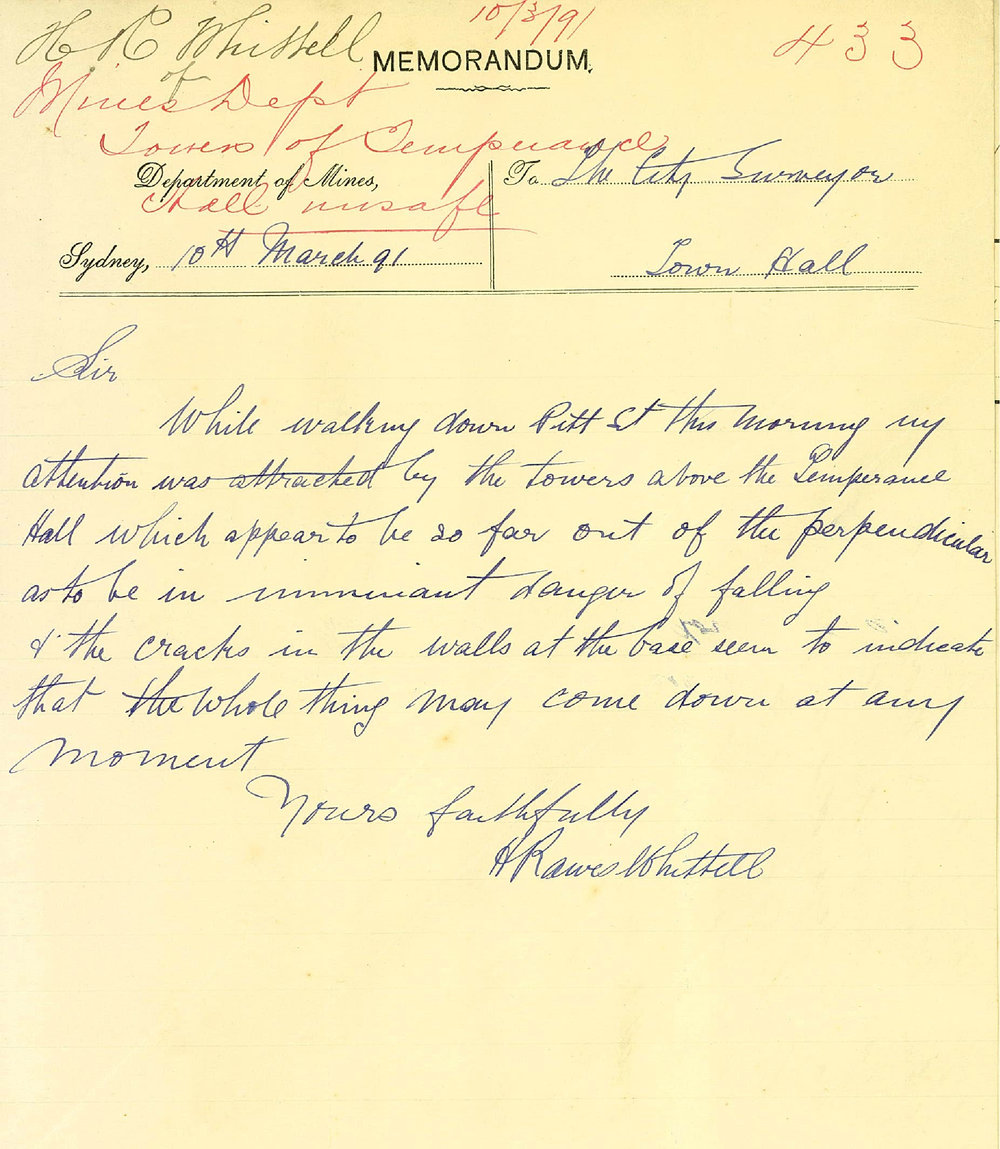 10/3/91
H R Whittell
MEMORANDUM.
433
of
Mines Dept
Towers of Temperance
Department of Mines,
To The City Surveyor
Hall unsafe
Sydney, 10th March 91
Town Hall
Sir
While walking down Pitt St this morning my
attention was attracted by the towers above the Temperance
Hall which appear to be so far out of the perpendicular
as to be in imminiant danger of falling
& the cracks in the walls at the base seem to indicate
that the whole thing may come down at any
moment
Yours faithfully
H Rawes Whittell